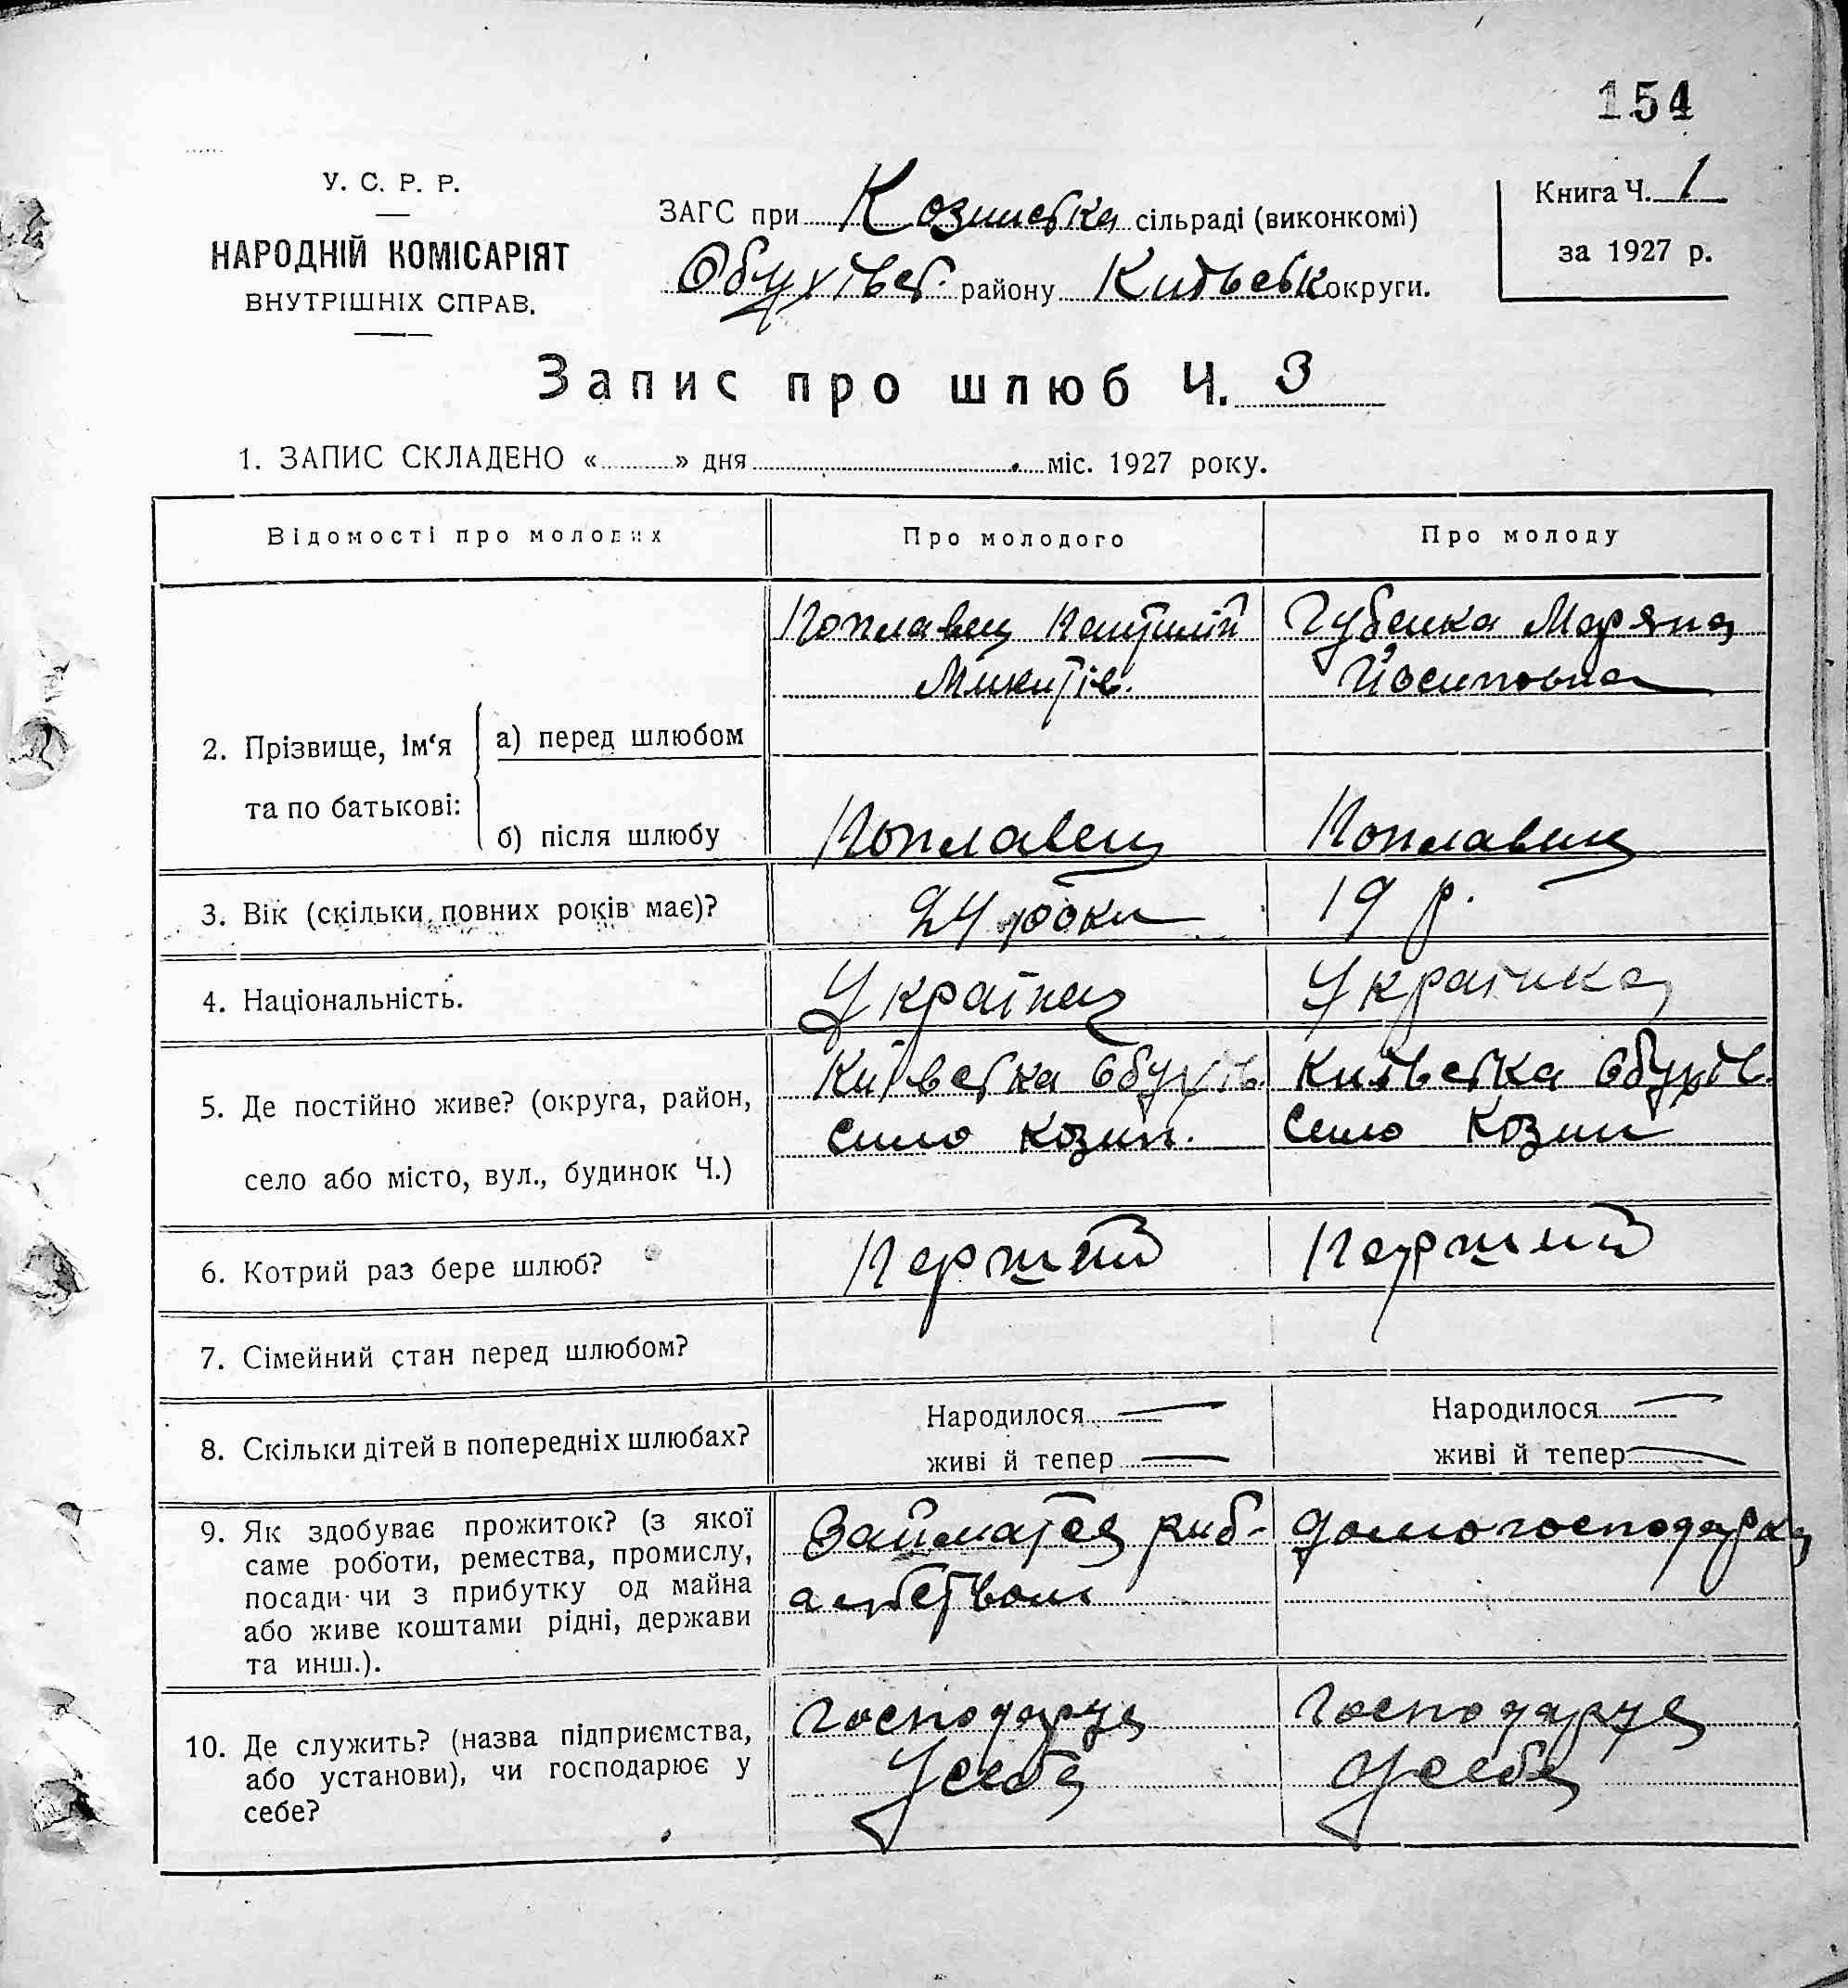 154
У. С. Р. Р.
НАРОДНІЙ КОМІСАРІЯТ
ВНУТРІШНІХ СПРАВ.
ЗАГС при Козинська сільраді (виконкомі)
Обухівсь. району Київськ округи.
Книга Ч. 1
за 1927 р.
Запис про шлюб Ч. 3
1. ЗАПИС СКЛАДЕНО « » дня міс. 1927 року.
Відомості про молодих
Про молодого
Про молоду
2. Прізвище, ім‘я та по батькові:
а) перед шлюбом
Поплавец Пантилій
Микитів.
Губенка Маряна
Йосиповна
б) після шлюбу
Поплавец
Поплавец
3. Вік (скільки повних років має)?
24 роки
19 р.
4. Національність.
Українец
Українка
5. Де постійно живе? (округа, район,
село або місто, вул., будинок Ч.)
Київська Обухів.
село Козин.
Київська Обухів.
село Козин
6. Котрий раз бере шлюб?
Перший
Перший
7. Сімейний стан перед шлюбом?
8. Скільки дітей в попередніх шлюбах?
Народилося —
живі й тепер —
Народилося —
живі й тепер —
9. Як здобуває прожиток? (з якої
саме роботи, ремества, промислу,
посади чи з прибутку од майна
або живе коштами рідні, держави
та инш.).
Займаєтся риб-
альством
домогосподарка
10. Де служить? (назва підприємства,
або установи), чи господарює у
себе?
Господарує
У себе
Господарує
У себе